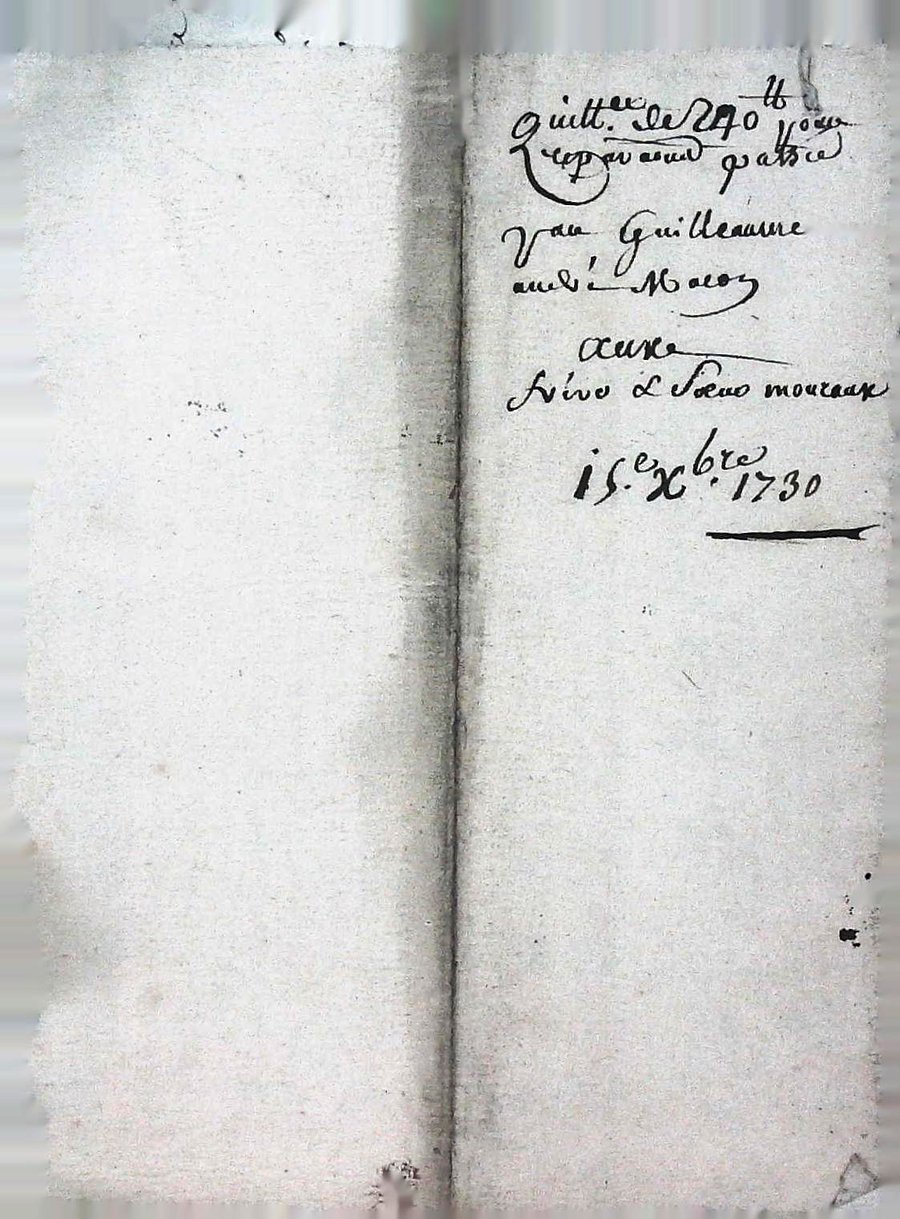 Quitt.ce de 240tt pour
reparaond passée
par Guilleaume
andré Macon
aux
frére & Sœurs moureaux
15.e Xbre. 1730